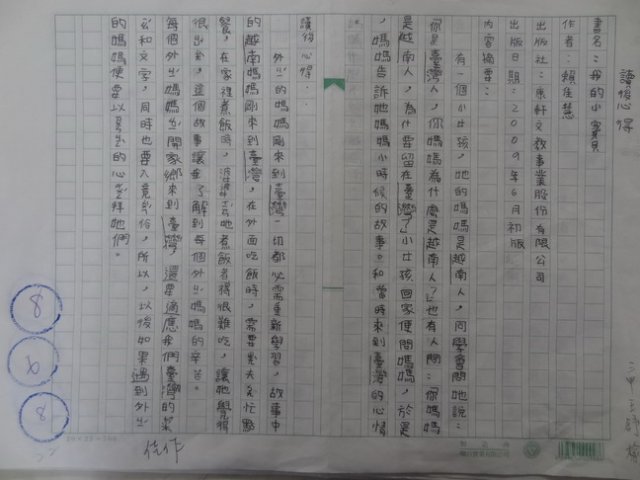 讀後心得
書名：我的小寶貝
作者：賴佳慧
出版社：康軒文教事業股份有限公司
出版日期：2009年6月初版
內容摘要：
有一個小女孩，她的媽媽是越南人，同學會問她說：
「你是臺灣人，你媽媽為什麼是越南人？」也有人問：「你媽媽
是越南人，為什麼要留在臺灣？」小女孩回家便問媽媽，於是
，媽媽告訴她媽媽小時候的故事。和當時來到臺灣的心情
讀後心得：
外出的媽媽剛來到臺灣一切都必需重新學習，故事中
的越南媽媽剛來到臺灣，在外面吃飯時，需要
餐，在家裡煮飯時，婆婆嫌她煮飯煮得很難吃，讓她覺得
很出糗，這個故事讓我了解到每個外出媽媽的辛苦。
每個外出媽媽出開家鄉來到臺灣，還要適應我們臺灣的
和文字，同時也要入竟，所以，以後如果遇到外出
的媽媽便要以的心她們。
佳作
8
6
8